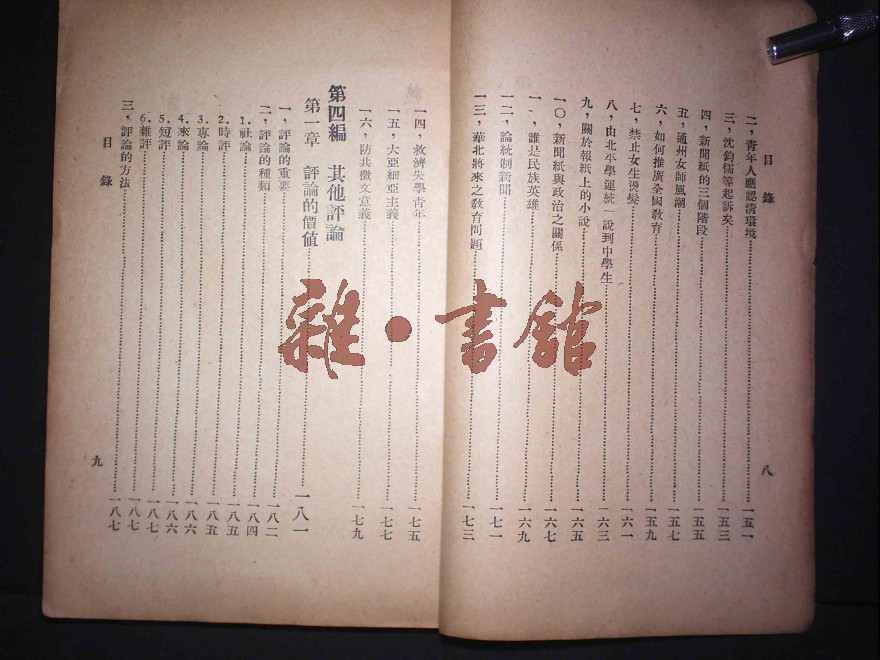 目錄
二，青年人應認清環境……一五一
三，沈鈞儒等起訴矣……一五三
四，新聞紙的三個階段……一五五
五，通州女師風潮……一五七
六，如何推廣全國教育……一五九
七，禁止女生燙髮……一六一
八，由北平學運統一說到中學生……一六三
九，關於報紙上的小說……一六五
一〇，新聞紙與政治之關係……一六七
一一，誰是民族英雄……一六九
一二，論統制新聞……一七一
一三，華北將來之教育問題……一七三
八
一四，救濟失學青年……一七五
一五，大亞細亞主義……一七七
一六，防共徵文意義……一七九
第四編 其他評論
第一章 評論的價值……一八一
一，評論的重要……一八二
二，評論的種類……一八四
1.社論……一八五
2.時評……一八五
3.專論……一八六
4.來論……一八六
5.短評……一八七
6.雜評……一八七
三，評論的方法……一八七
目錄
九
雜·書館